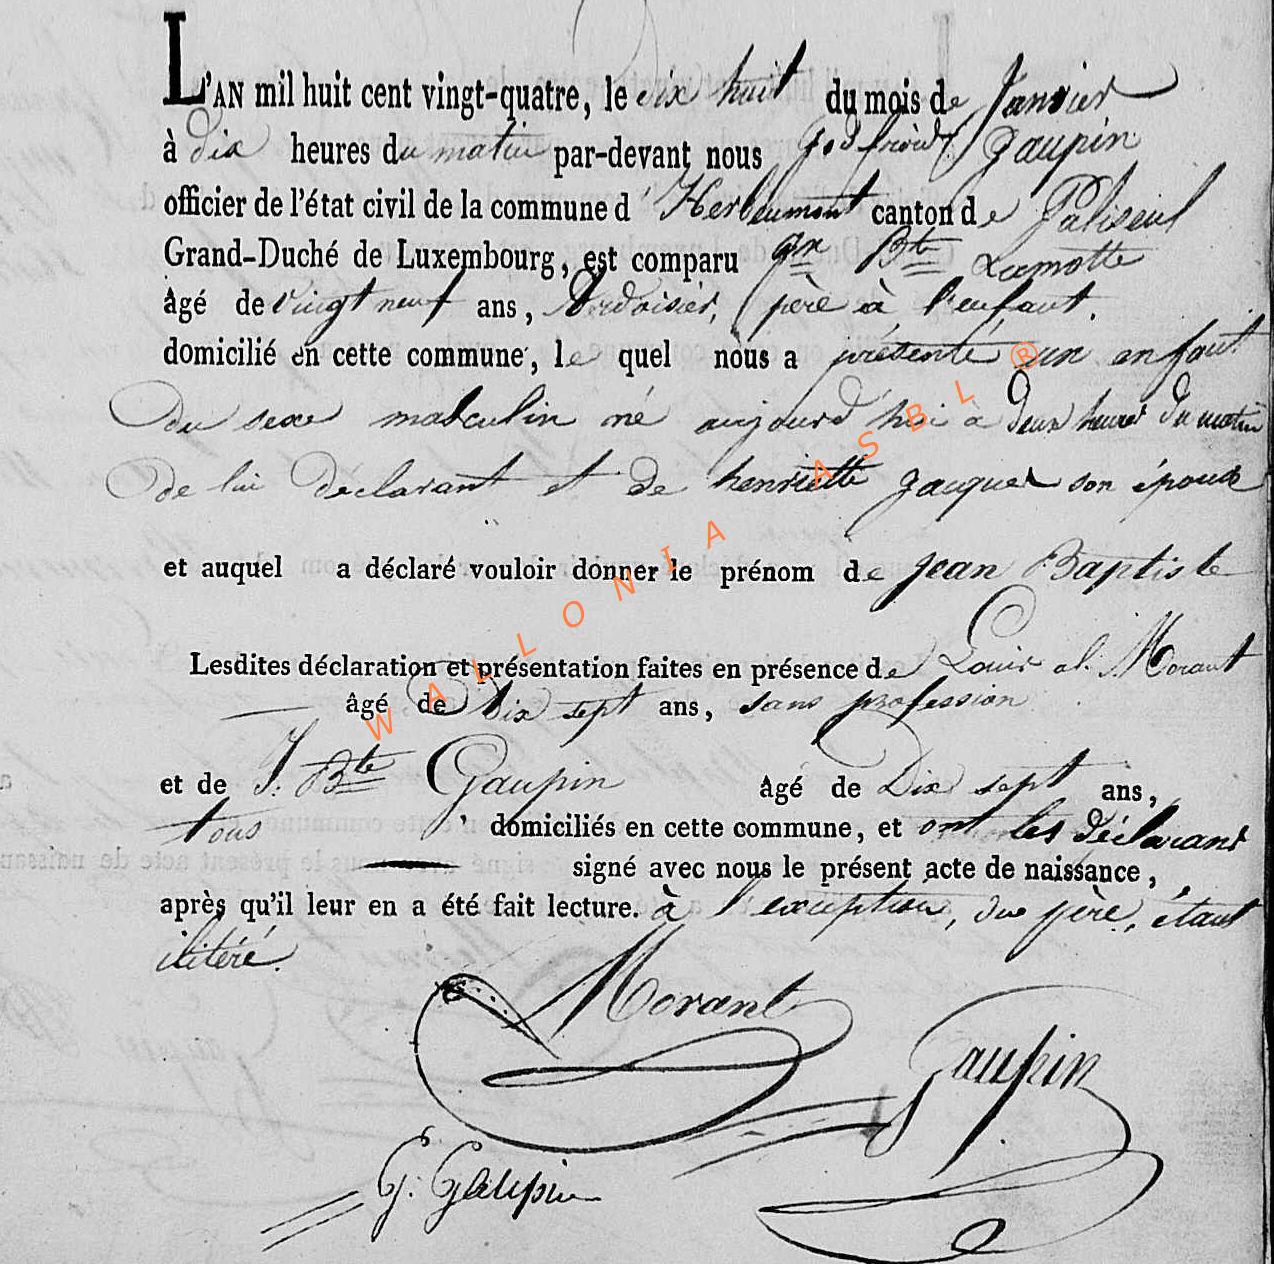 L'AN mil huit cent vingt-quatre, le dix huit du mois de Janvier
à dix heures du matin par-devant nous godfroid Gaupin
officier de l'état civil de la commune d'Herbeumont canton de Paliseul
Grand-Duché de Luxembourg, est comparu Bte Lamotte
âgé de vingt neuf ans, Ardoisier, père à l'enfant.
domicilié en cette commune, le quel nous a présenté un enfant
du sexe masculin né aujourd'hui à deux heures du matin
de lui déclarant et de henriette Jacques son épouse
et auquel a déclaré vouloir donner le prénom de Jean Baptiste
Lesdites déclaration et présentation faites en présence de Louis al. Morant
âgé de dix sept ans, sans profession
et de J. Bte Gaupin âgé de Dix sept ans,
tous domiciliés en cette commune, et ont les déclarant
signé avec nous le présent acte de naissance,
après qu'il leur en a été fait lecture. à l'exception, du père, étant
ilitéré.
Morant
Gaupin
G. Gaupin
WALLONIA ASBL ®